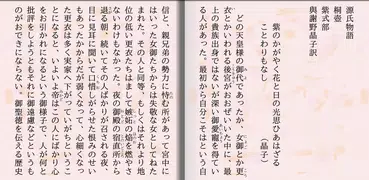 源氏物語
桐壺
紫式部
與謝野晶子訳
紫のかがやく花と日の光思ひあはざる
ことわりもなし
（晶子）
どの天皇様の御代であったか、女御とか更
衣とかいわれる後宮がおおぜいいた中に、最
上の貴族出身ではないが深い御愛寵を得てい
る人があった。最初から自分こそはという自
信と、親兄弟の勢力に恃む所があって宮中に
はいった女御たちからは失敬な女としてねた
まれた。その人と同等、もしくはそれより地
位の低い更衣たちはまして嫉妬の焔を燃やさ
ないわけもなかった。夜の御殿の宿直所から
退る朝、続いてその人ばかりが召される夜、
目に見耳に聞いて口惜しがらせた恨みのせい
もあったかからだが弱くなって、心細くなっ
た更衣は多く実家へ下がっていがちというこ
とになると、いよいよ帝はこの人にばかり心
をお引かれになるという御様子で、人が何と
批評をしようともそれに御遠慮などというも
のがおできにならない。御聖徳を伝える歴史